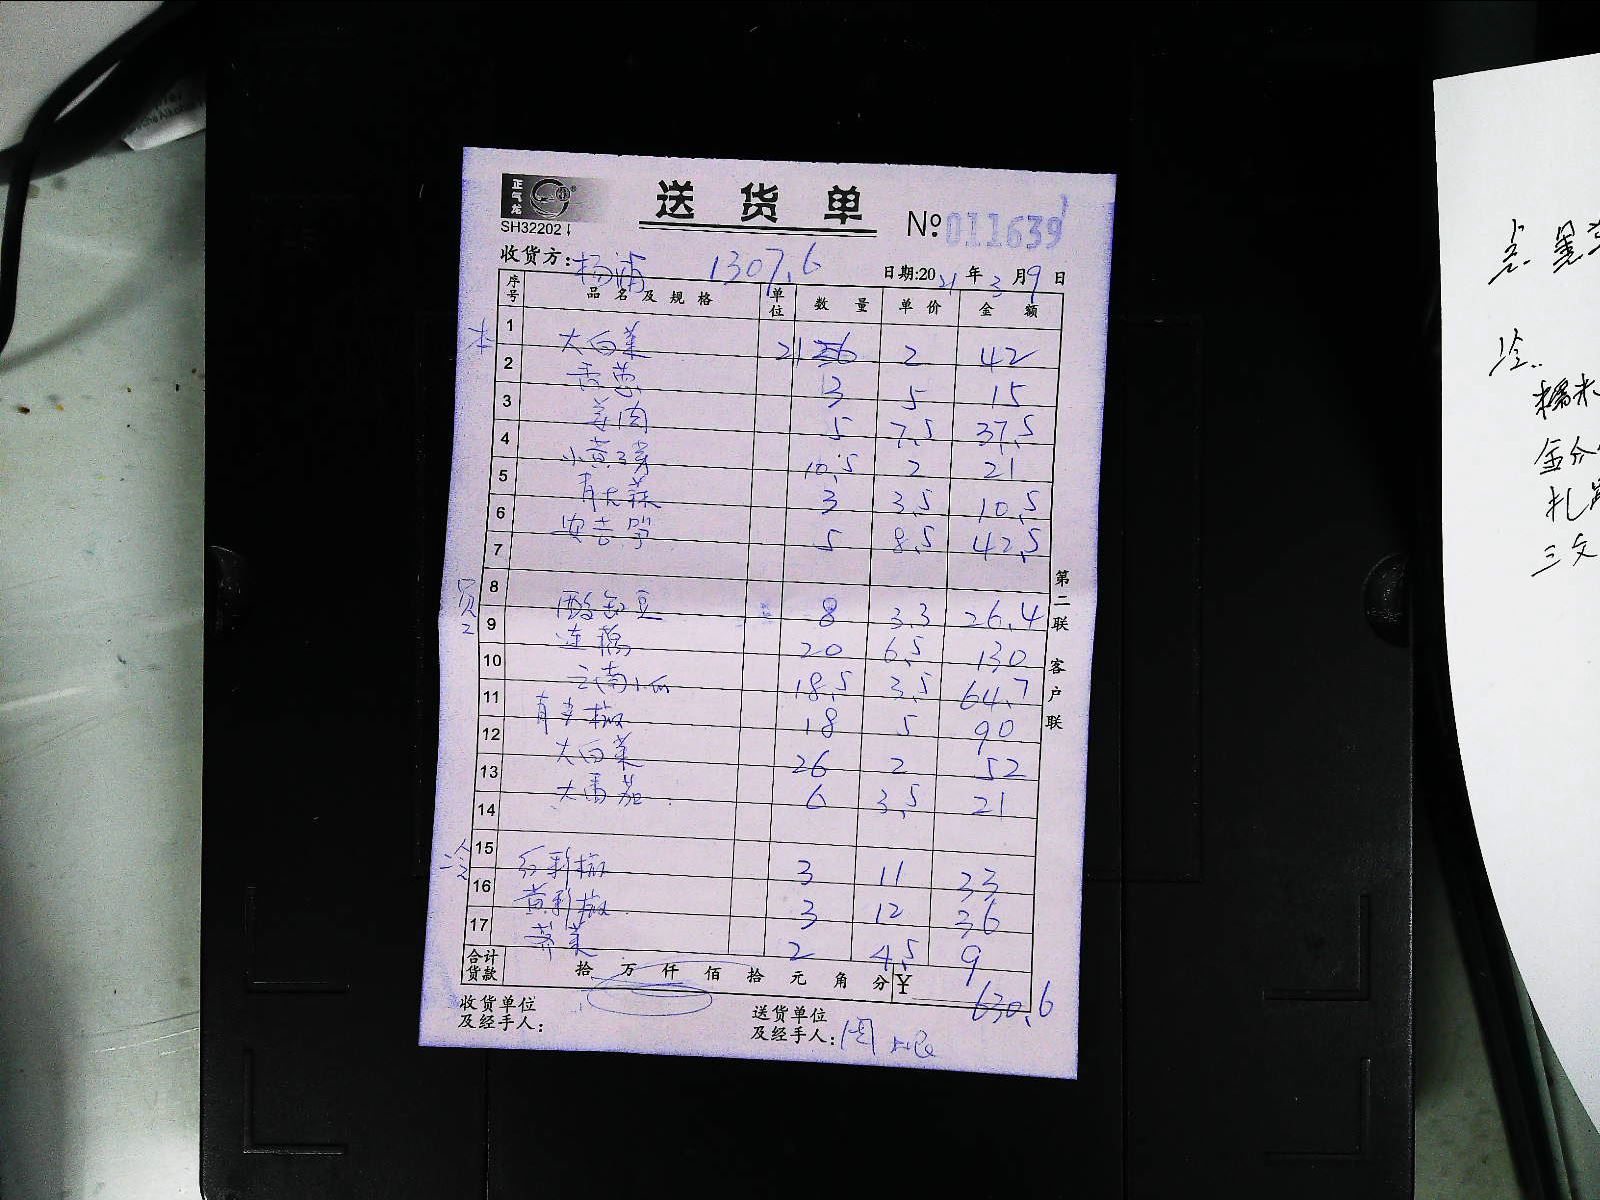 正气龙
送 货 单
SH32202
No: 011639
收货方: 杨浦 1307.6 日期:2021年3月9日
序号 品名及规格 单位 数量 单价 金额
本
1 大白菜 21 2 42
2 香葱 3 5 15
3 姜肉 5 7.5 37.5
4 小黄芽 10.5 2 21
5 青大蒜 3 3.5 10.5
6 安吉笋 5 8.5 42.5
7
员工
8 酸缸豆 8 3.3 26.4
9 连藕 20 6.5 130
10 云南小瓜 18.5 3.5 64.7
11 青尖椒 18 5 90
12 大白菜 26 2 52
13 大番茄 6 3.5 21
14
冷
15 红彩椒 3 11 33
16 黄彩椒 3 12 36
17 荠菜 2 4.5 9
合计货款 拾 万 仟 佰 拾 元 角 分 ¥ 630.6
收货单位及经手人:
送货单位及经手人: 周
第二联 客户联
冷..
糯米
三文